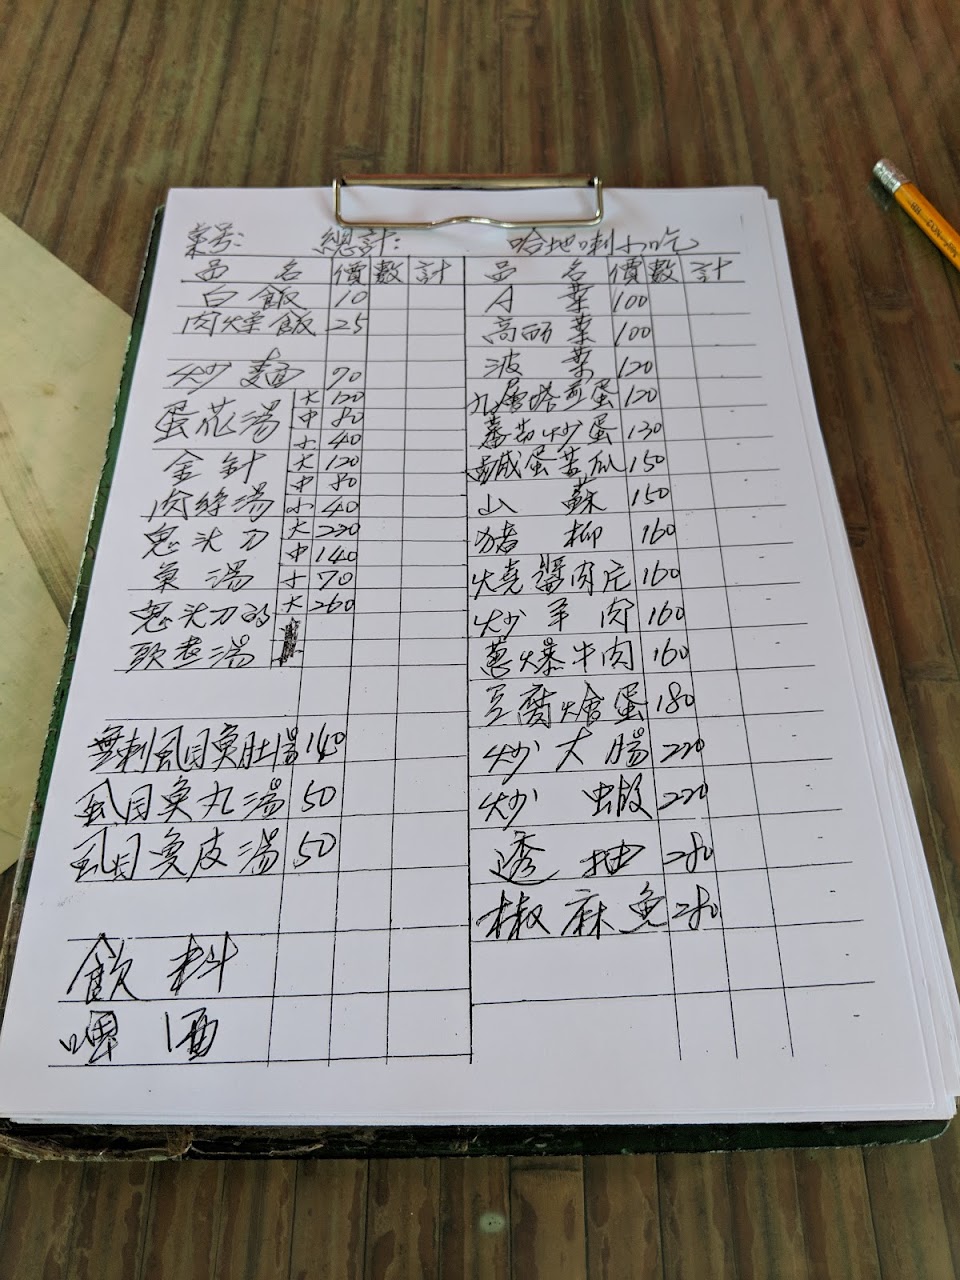 桌号: 總計: 哈地喇小吃
品名 價 數 計
白飯 10
肉燥飯 25
炒麵 70
蛋花湯 大 120
中 80
小 40
金針 大 120
中 80
肉絲湯 小 40
鬼头刀 大 220
中 140
魚湯 小 70
鬼头刀的 大 260
頭煮湯
無刺虱目魚肚湯 140
虱目魚丸湯 50
虱目魚皮湯 50
飲料
啤酒
品名 價 數 計
A菜 100
高丽菜 100
波菜 120
九層塔煎蛋 120
蕃茄炒蛋 130
鹹蛋苦瓜 150
山蘇 150
猪柳 160
燒醬肉片 160
炒羊肉 160
蔥爆牛肉 160
豆腐燴蛋 180
炒大腸 220
炒蝦 220
透抽 280
椒麻魚 280